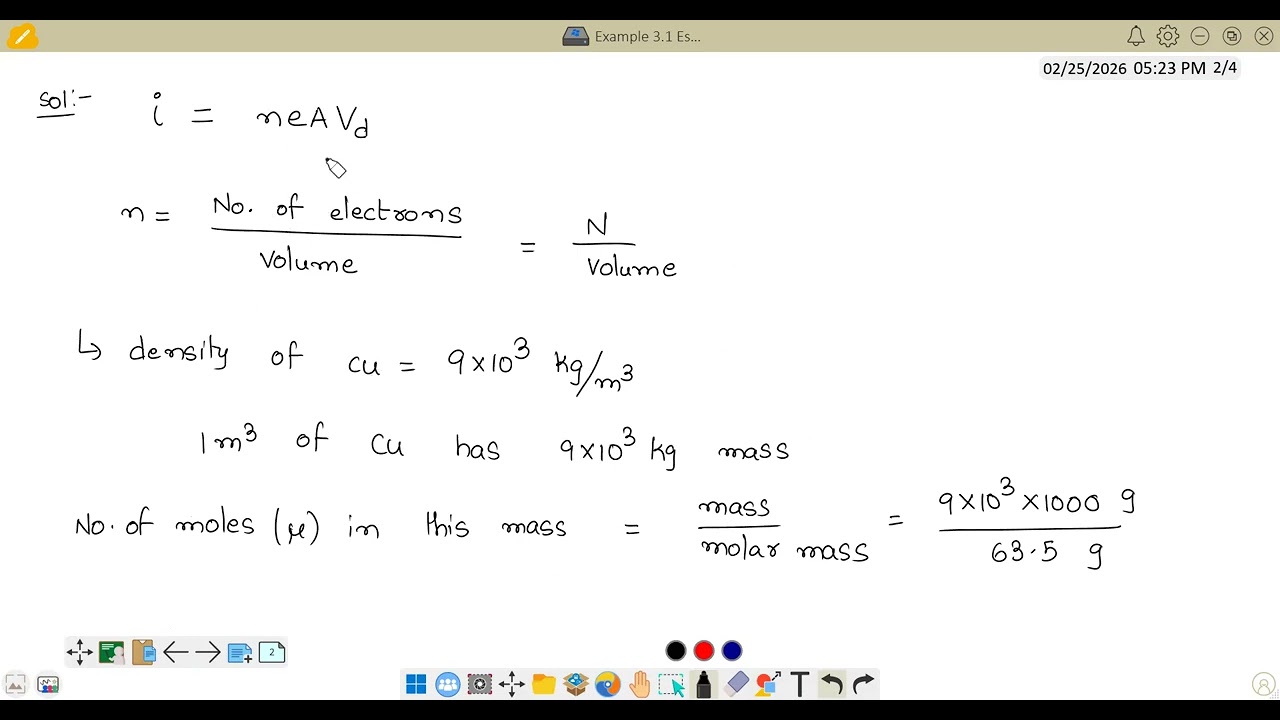 Example 3.1 Es...
02/25/2026 05:23 PM 2/4
Sol:-
i = neAVd
n = No. of electrons / Volume = N / Volume
↳ density of cu = 9×10³ kg/m³
1m³ of Cu has 9×10³ kg mass
No. of moles (μ) in this mass = mass / molar mass = 9×10³×1000 g / 63.5 g
2
T